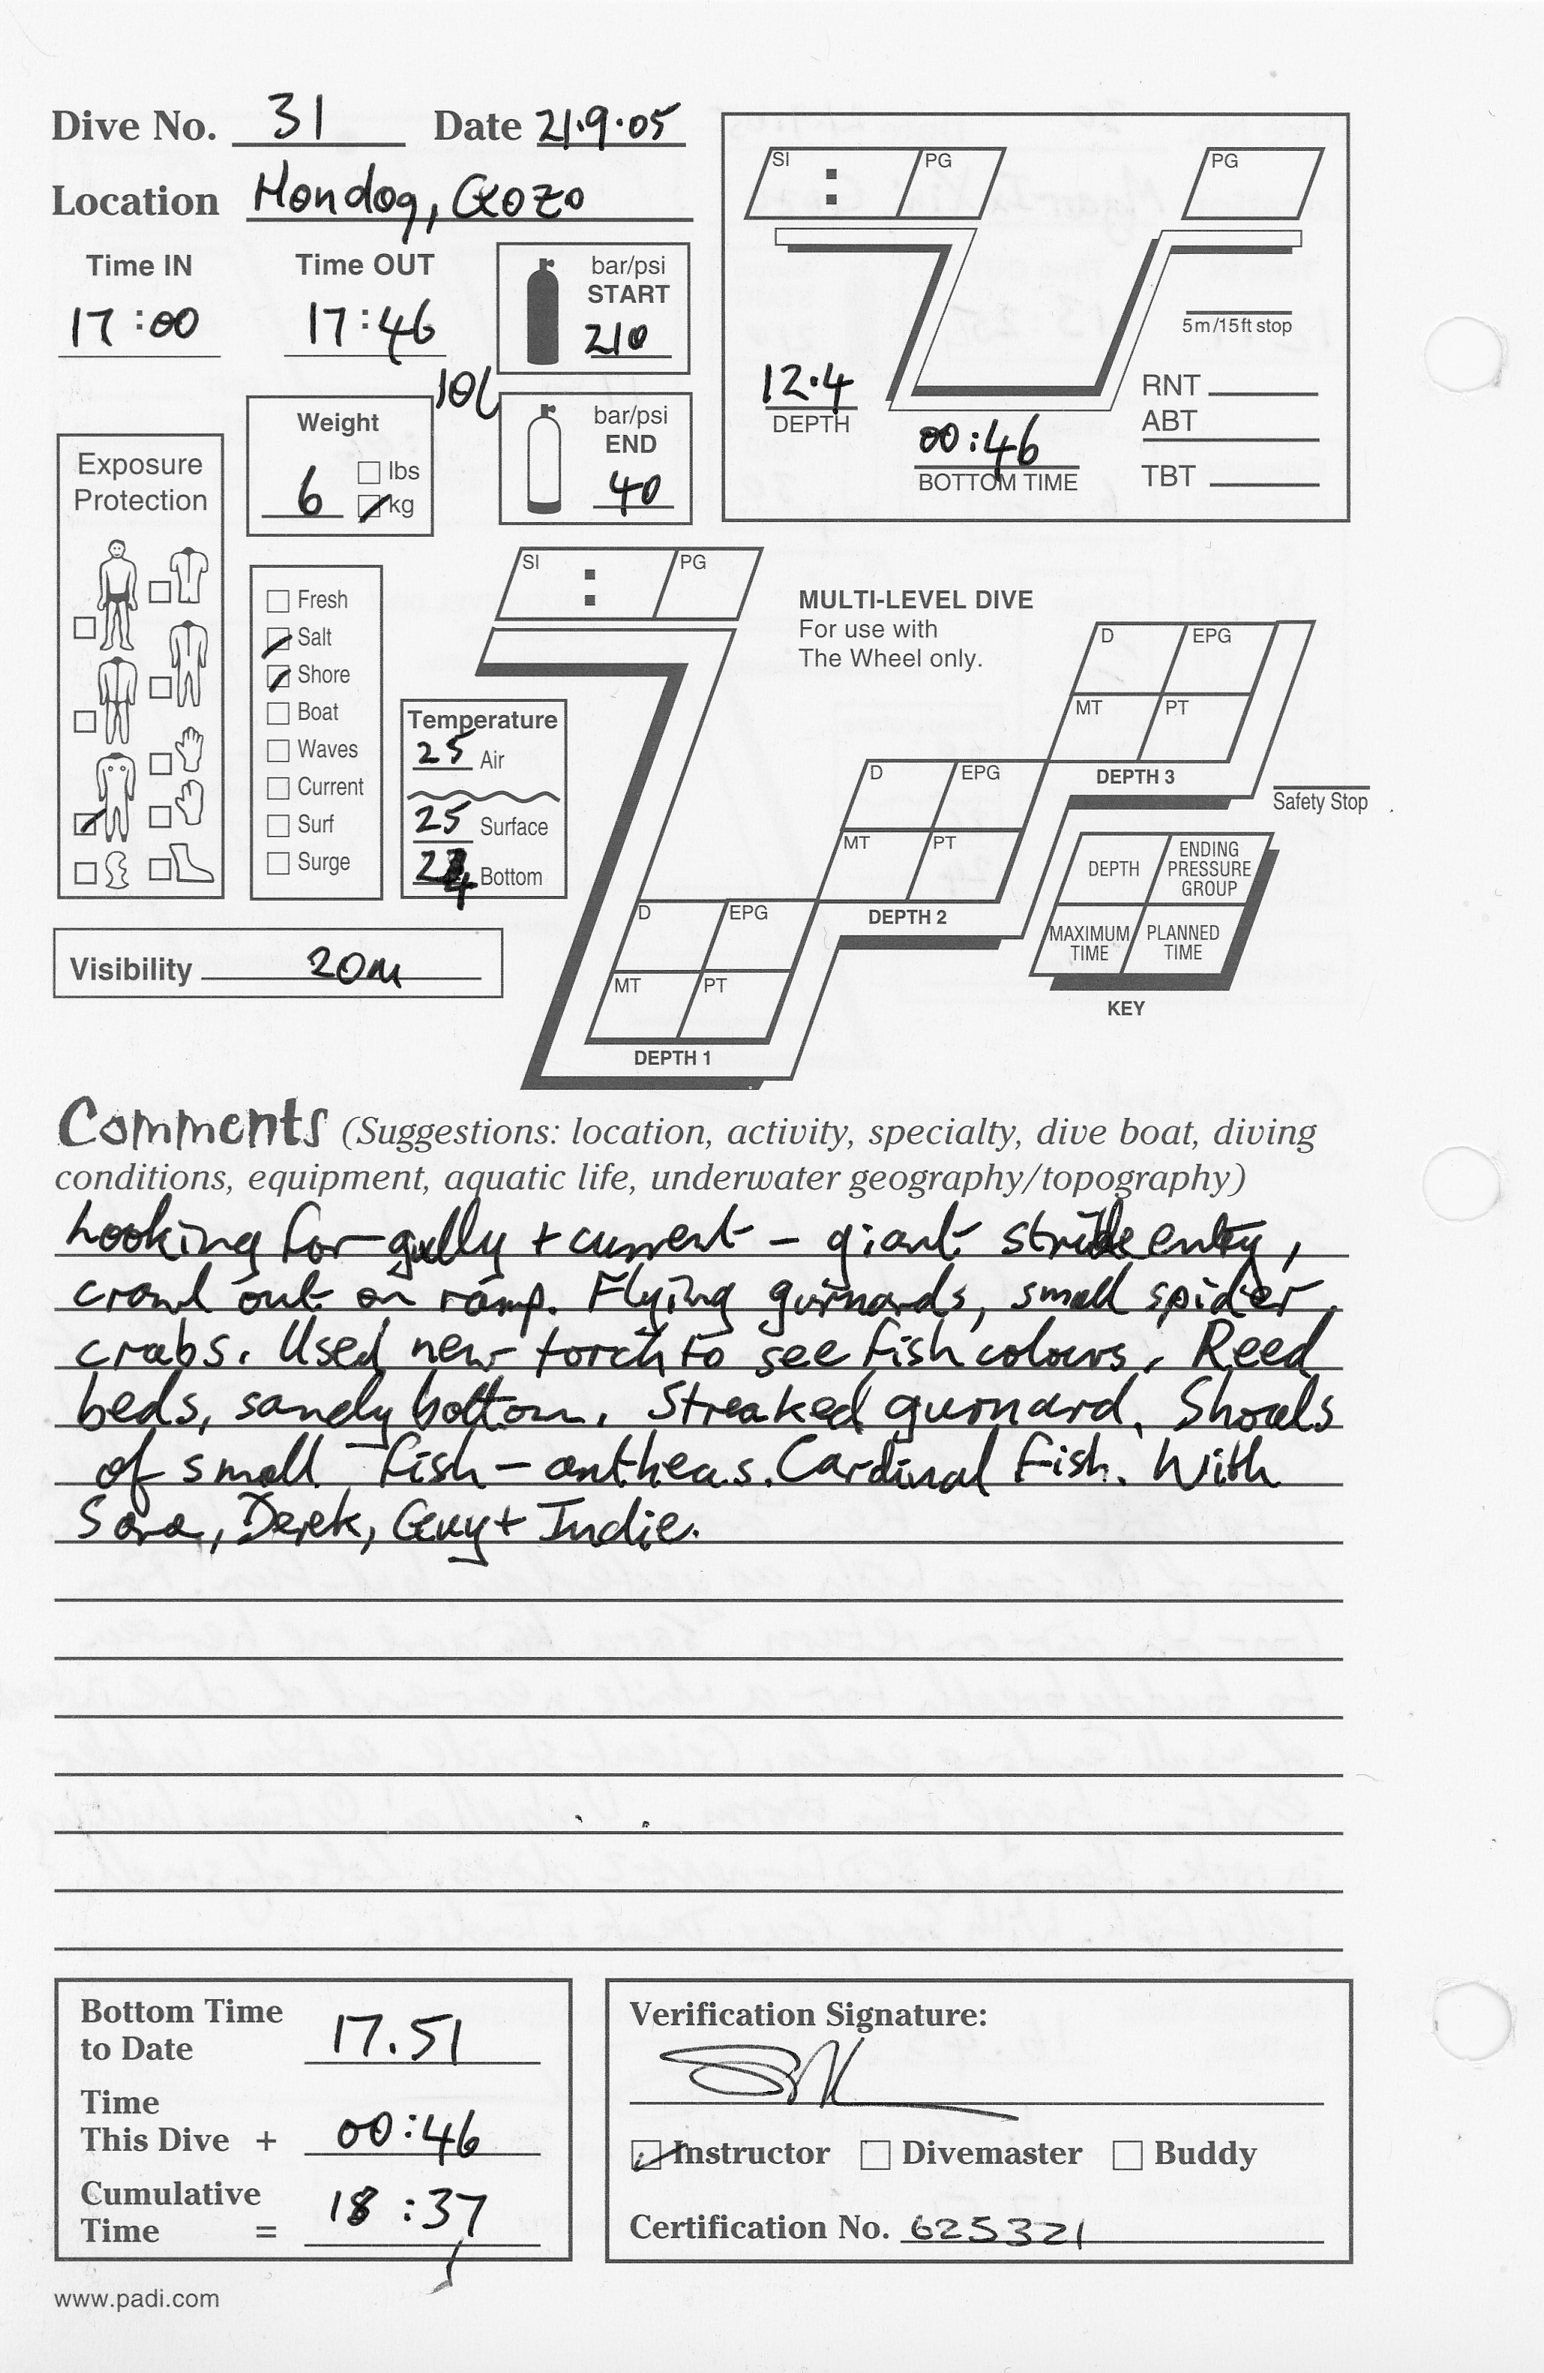 Dive No. 31 Date 21.9.05
Location Hondoq, Gozo
Time IN Time OUT
17:00 17:46
bar/psi
START
210
10L
bar/psi
END
40
Weight
6
lbs
kg
Exposure
Protection
Fresh
Salt
Shore
Boat
Waves
Current
Surf
Surge
Temperature
25 Air
25 Surface
24 Bottom
Visibility 20m
SI : PG
PG
5m/15ft stop
12.4
DEPTH
00:46
BOTTOM TIME
RNT
ABT
TBT
SI : PG
MULTI-LEVEL DIVE
For use with
The Wheel only.
D EPG
MT PT
DEPTH 3
Safety Stop
D EPG
MT PT
DEPTH 2
D EPG
MT PT
DEPTH 1
DEPTH
ENDING
PRESSURE
GROUP
MAXIMUM
TIME
PLANNED
TIME
KEY
Comments (Suggestions: location, activity, specialty, dive boat, diving
conditions, equipment, aquatic life, underwater geography/topography)
Looking for gully + current - giant stride entry,
crawl out on ramp. Flying gurnards, small spider
crabs. Used new torch to see fish colours. Reed
beds, sandy bottom. Streaked gurnard. Shoals
of small fish - antheas. Cardinal fish. With
Sara, Derek, Guy + Indie.
Bottom Time
to Date 17.51
Time
This Dive + 00:46
Cumulative
Time = 18:37
Verification Signature:
Instructor Divemaster Buddy
Certification No. 625321
www.padi.com